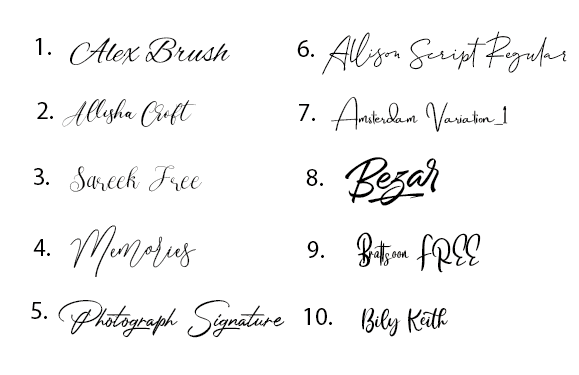 1. Alex Brush
2. Allisha Croft
3. Sareek Free
4. Memories
5. Photograph Signature
6. Allison Script Regular
7. Amsterdam Variation_1
8. Bezar
9. Brattsoon FREE
10. Bily Keith